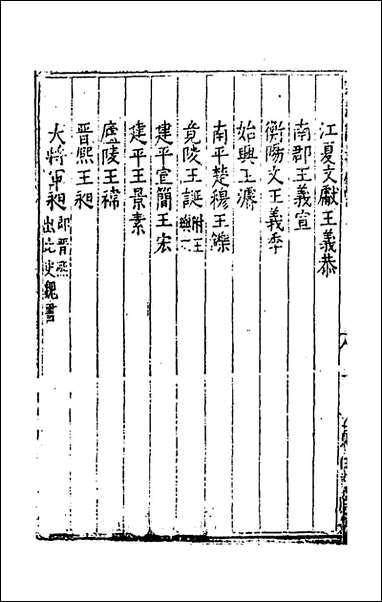 江夏文獻王義恭
南郡王義宣
衡陽文王義季
始興王濬
南平楚穆王鑠
竟陵王誕附王璵之
建平宣簡王宏
建平王景素
廬陵王禕
晉熙王昶
大將軍昶即晉熈出北史魏書